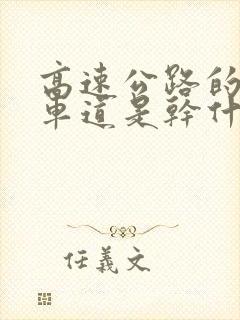 高速公路的
车道是幹什
任義文